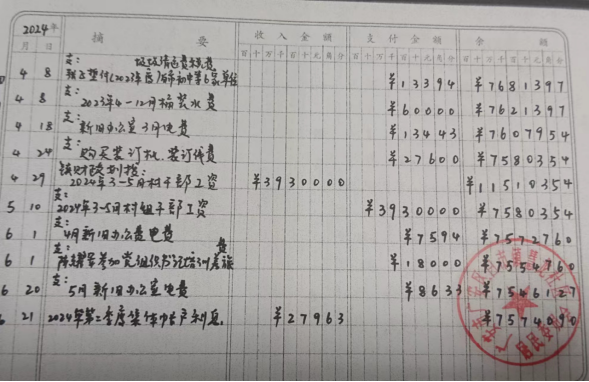 2024年
月 日 摘 要 收入金额 支付金额 余 额
百 十 万 千 百 十 元 角 分 百 十 万 千 百 十 元 角 分 百 十 万 千 百 十 元 角 分
支: 垃圾清
4 8 垫付(2023年 ¥13394 ¥7681397
支:
4 8 2023年4-12月桶装水费 ¥60000 ¥7621397
支:
4 18 新旧办公室3月电费 ¥13443 ¥7607954
支:
4 24 购买装订机.装订线费 ¥27600 ¥7580354
4 29 2024年3-5月村干部工资 ¥3930000 ¥11510354
支:
5 10 2024年3-5月村组干部工资 ¥3930000 ¥7580354
支:
6 1 4月新旧办公室电费 ¥7594 ¥7572760
支: 费
6 1 参加党组织书记培训差旅 ¥18000 ¥7554760
支:
6 20 5月新旧办公室电费 ¥8633 ¥7546127
6 21 2024年第二季度集体帐户利息. ¥27963 ¥7574090